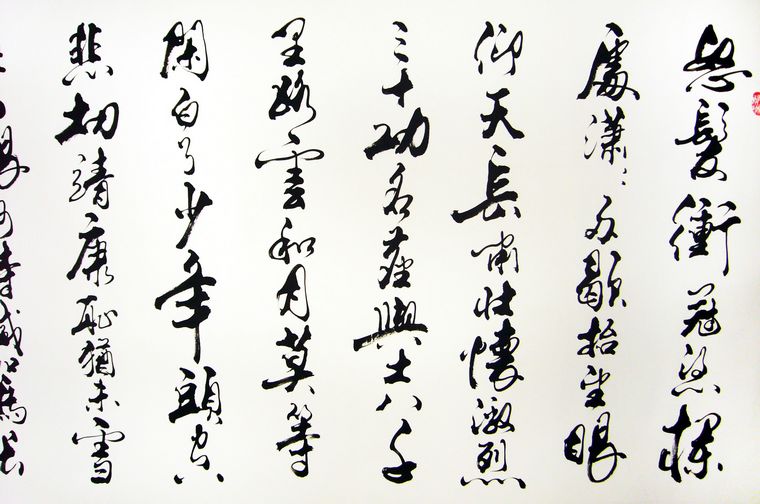 怒髮衝冠憑欄
處瀟々雨歇抬望眼
仰天長嘯壯懷激烈
三十功名塵與土八千
里路雲和月莫等
閑白了少年頭空
悲切靖康恥猶未雪
恨何時滅駕長